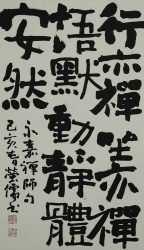 行亦禪坐亦禪
悟默動靜體
安然
永嘉禪師句
己亥春